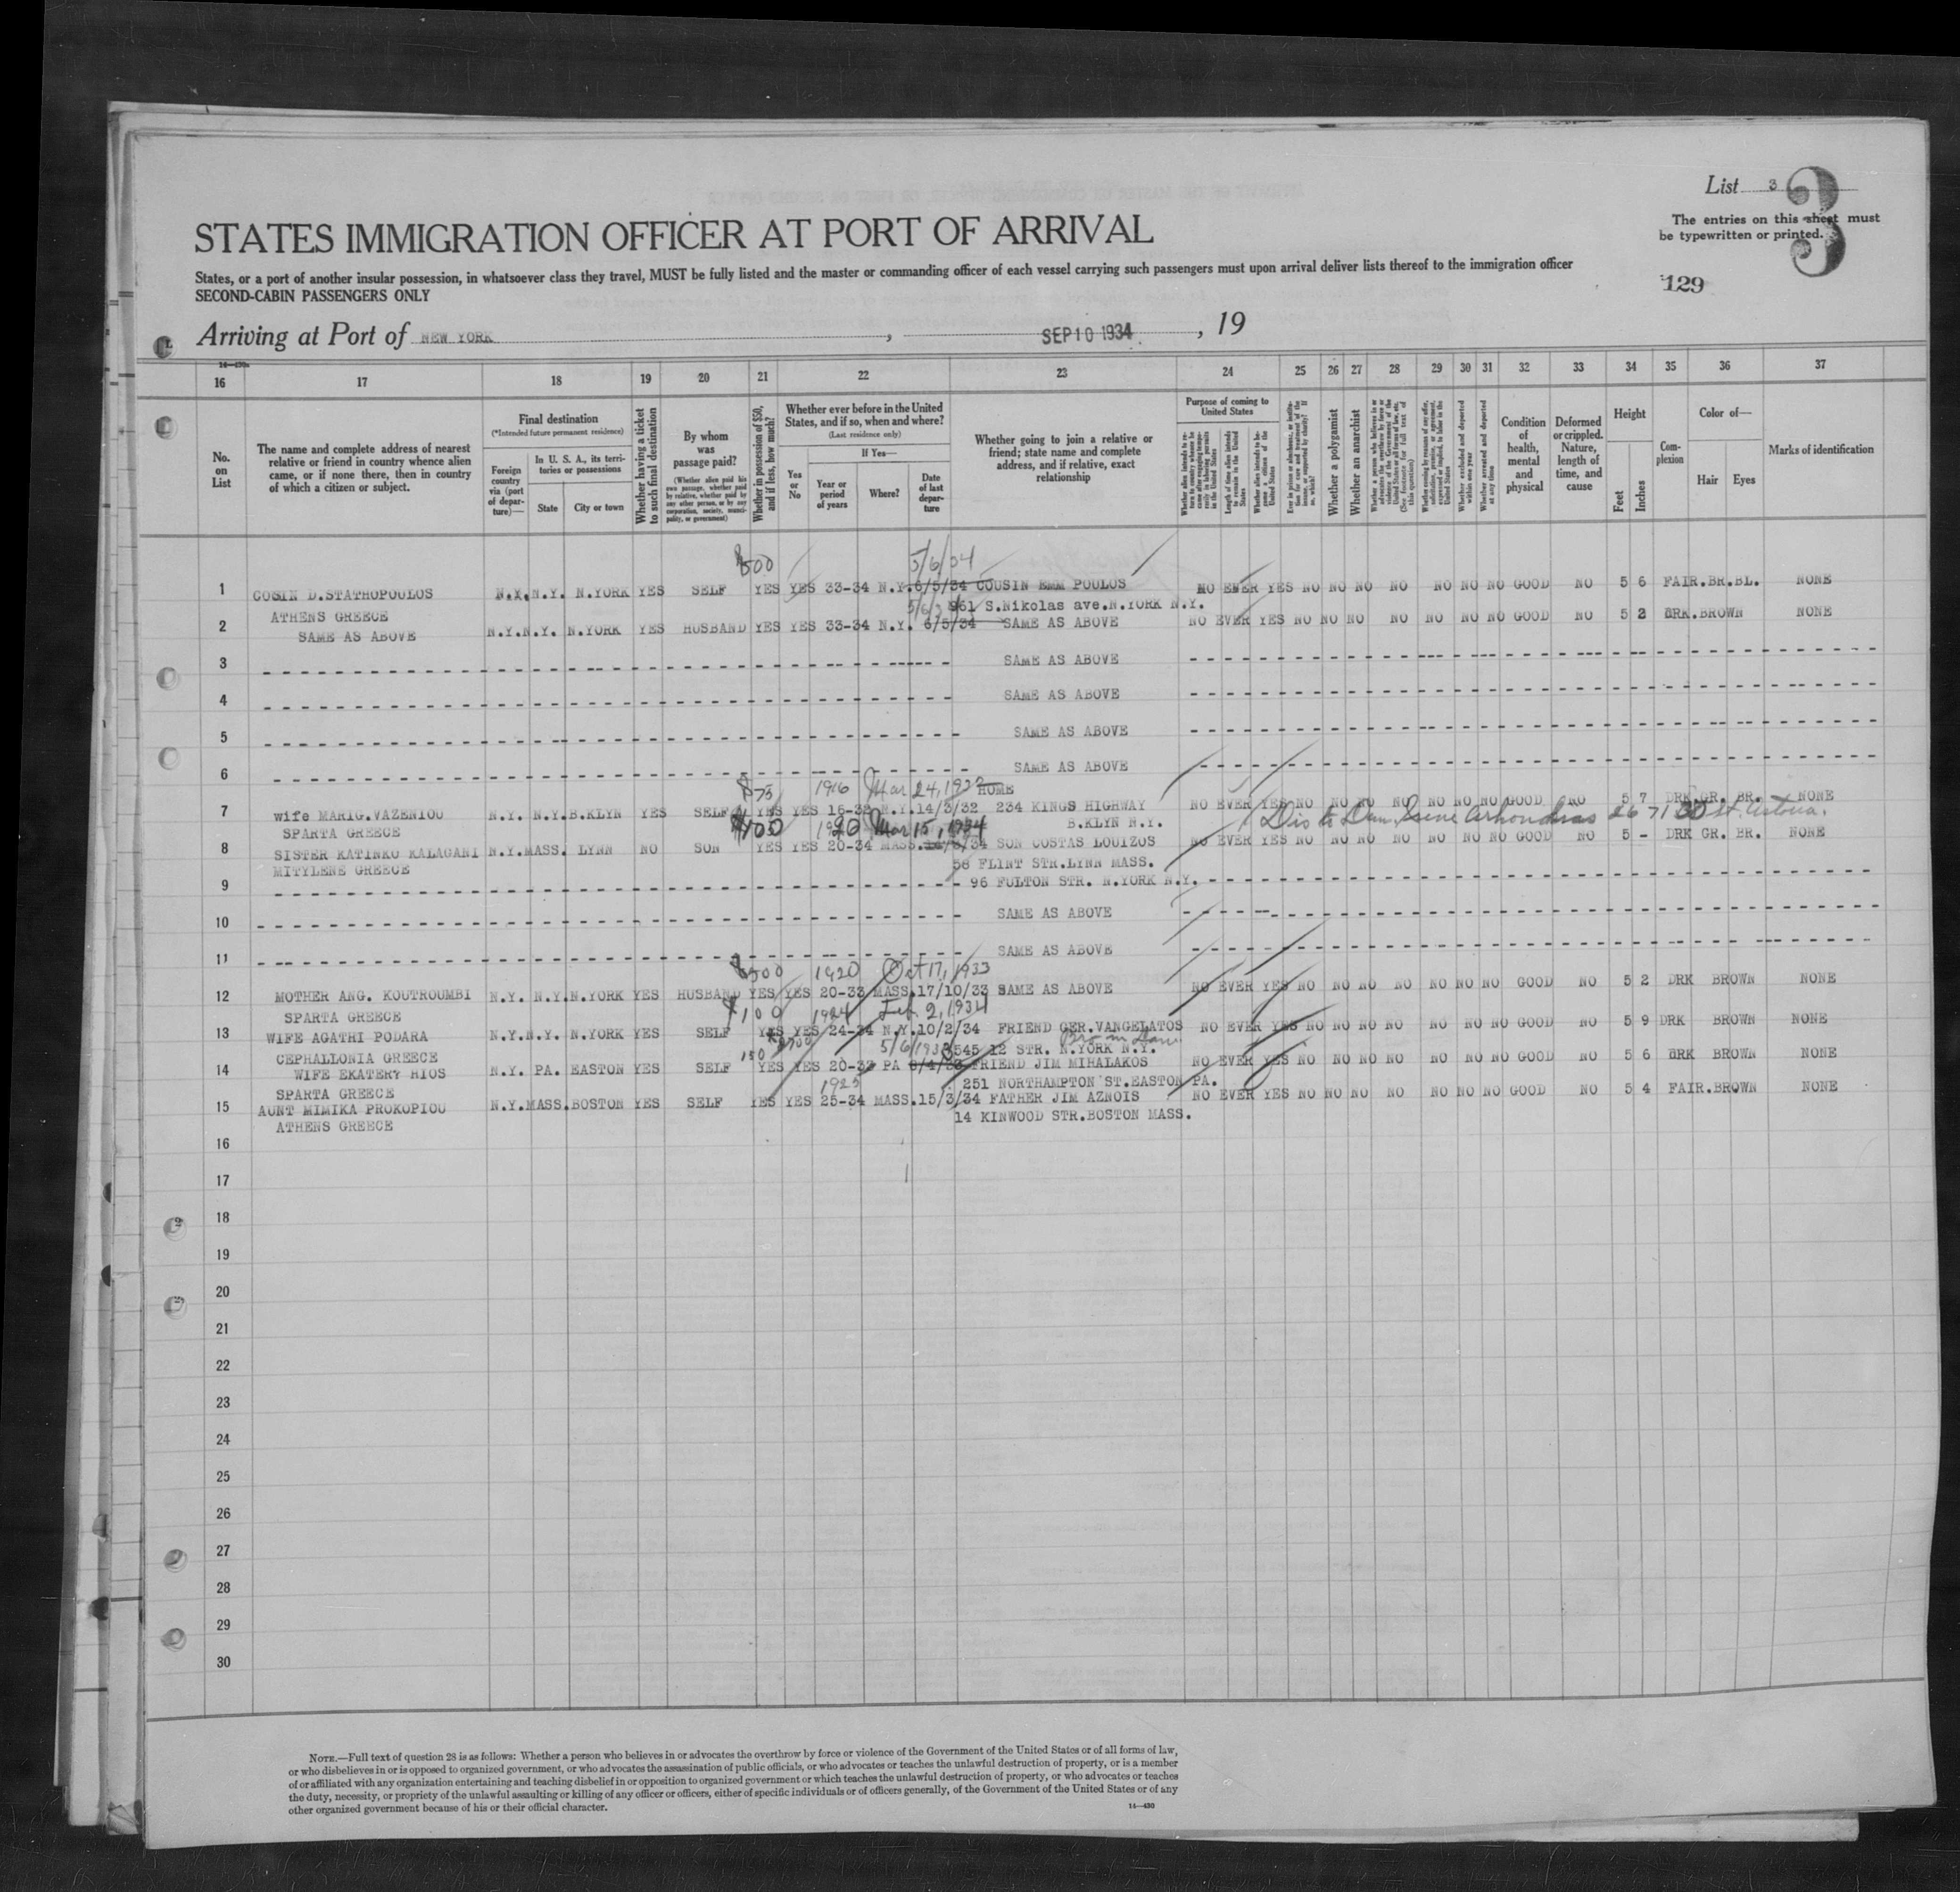 List 3
3
The entries on this sheet must
be typewritten or printed.
129
STATES IMMIGRATION OFFICER AT PORT OF ARRIVAL
States, or a port of another insular possession, in whatsoever class they travel, MUST be fully listed and the master or commanding officer of each vessel carrying such passengers must upon arrival deliver lists thereof to the immigration officer
SECOND-CABIN PASSENGERS ONLY
Arriving at Port of NEW YORK, SEP 10 1934, 19
16 17 18 19 20 21 22 23 24 25 26 27 28 29 30 31 32 33 34 35 36 37
No. on List
The name and complete address of nearest relative or friend in country whence alien came, or if none there, then in country of which a citizen or subject.
Final destination
(*Intended future permanent residence)
Foreign country via (port of departure)—
In U. S. A., its territories or possessions
State
City or town
Whether having a ticket to such final destination
By whom was passage paid?
(Whether alien paid his own passage, whether paid by relative, whether paid by any other person, or by any corporation, society, municipality, or government)
Whether in possession of $50, and if less, how much?
Whether ever before in the United States, and if so, when and where?
(Last residence only)
Yes or No
If Yes—
Year or period of years
Where?
Date of last departure
Whether going to join a relative or friend; state name and complete address, and if relative, exact relationship
Purpose of coming to United States
Length of time alien intends to remain in the United States
Whether alien intends to become a citizen of the United States
Whether a polygamist
Whether an anarchist
Whether excluded and deported within one year
Whether arrested and deported at any time
Condition of health, mental and physical
Deformed or crippled. Nature, length of time, and cause
Height
Feet
Inches
Complexion
Color of—
Hair
Eyes
Marks of identification
$500 5/6/34
1 COSIN D.STATHOPOULOS N.Y. N.Y. N.YORK YES SELF YES YES 33-34 N.Y. 6/5/34 COUSIN EMM POULOS NO EVER YES NO NO NO NO NO NO NO GOOD NO 5 6 FAIR.BR.BL. NONE
ATHENS GREECE 5/6/3 961 S.Nikolas ave.N.YORK N.Y.
2 SAME AS ABOVE N.Y.N.Y. N.YORK YES HUSBAND YES YES 33-34 N.Y. 6/5/34 SAME AS ABOVE NO EVER YES NO NO NO NO NO NO NO GOOD NO 5 2 DRK.BROWN NONE
3 SAME AS ABOVE
4 SAME AS ABOVE
5 SAME AS ABOVE
6 SAME AS ABOVE
$75 1916 Mar 24, 1932 HOME
7 wife MARIG.VAZENIOU N.Y. N.Y.B.KLYN YES SELF YES YES 16-32 N.Y.14/3/32 234 KINGS HIGHWAY NO EVER YES NO NO NO NO NO NO NO GOOD NO 5 7 DRK GR. BR. NONE
SPARTA GREECE $100 1920 Mar 15, 1934 B.KLYN N.Y. Dis to 26 71 30 St. Astoria.
8 SISTER KATINKO KALAGANI N.Y.MASS. LYNN NO SON YES YES 20-34 MASS. /34 SON COSTAS LOUIZOS NO EVER YES NO NO NO NO NO NO NO GOOD NO 5 - DRK GR. BR. NONE
MITYLENE GREECE 58 FLINT STR.LYNN MASS.
9 96 FULTON STR. N.YORK N.Y.
10 SAME AS ABOVE
11 SAME AS ABOVE
$500 1920 Oct 17, 1933
12 MOTHER ANG. KOUTROUMBI N.Y. N.Y.N.YORK YES HUSBAND YES YES 20-33 MASS.17/10/33 SAME AS ABOVE NO EVER YES NO NO NO NO NO NO NO GOOD NO 5 2 DRK BROWN NONE
SPARTA GREECE $100 1924 Feb. 2, 1934
13 WIFE AGATHI PODARA N.Y.N.Y. N.YORK YES SELF YES YES 24-34 N.Y.10/2/34 FRIEND GER.VANGELATOS NO EVER YES NO NO NO NO NO NO NO GOOD NO 5 9 DRK BROWN NONE
CEPHALLONIA GREECE 150 5/6/1933 545 12 STR. N.YORK N.Y.
14 WIFE EKATERY RIOS N.Y. PA. EASTON YES SELF YES YES 20-33 PA FRIEND JIM MIHALAKOS NO EVER YES NO NO NO NO NO NO NO GOOD NO 5 6 DRK BROWN NONE
SPARTA GREECE 1925 251 NORTHAMPTON ST.EASTON PA.
15 AUNT MIMIKA PROKOPIOU N.Y.MASS.BOSTON YES SELF YES YES 25-34 MASS.15/3/34 FATHER JIM AZNOIS NO EVER YES NO NO NO NO NO NO NO GOOD NO 5 4 FAIR.BROWN NONE
ATHENS GREECE 14 KINWOOD STR.BOSTON MASS.
16
17
18
19
20
21
22
23
24
25
26
27
28
29
30
NOTE.—Full text of question 28 is as follows: Whether a person who believes in or advocates the overthrow by force or violence of the Government of the United States or of all forms of law,
or who disbelieves in or is opposed to organized government, or who advocates the assassination of public officials, or who advocates or teaches the unlawful destruction of property, or is a member
of or affiliated with any organization entertaining and teaching disbelief in or opposition to organized government or which teaches the unlawful destruction of property, or who advocates or teaches
the duty, necessity, or propriety of the unlawful assaulting or killing of any officer or officers, either of specific individuals or of officers generally, of the Government of the United States or of any
other organized government because of his or their official character.
14—430